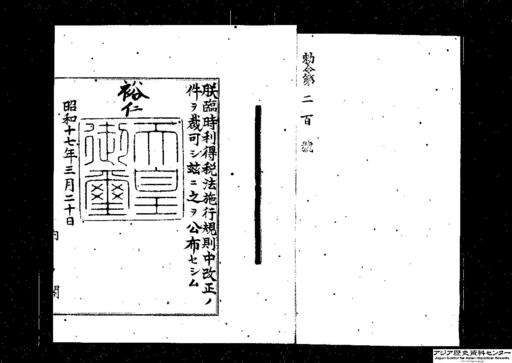 勅令第二百號
朕臨時利得税法施行規則中改正ノ
件ヲ裁可シ玆ニ之ヲ公布セシム
裕仁
天皇
御璽
昭和十七年三月二十日
内閣
アジア歴史資料センター
Japan Center for Asian Historical Records